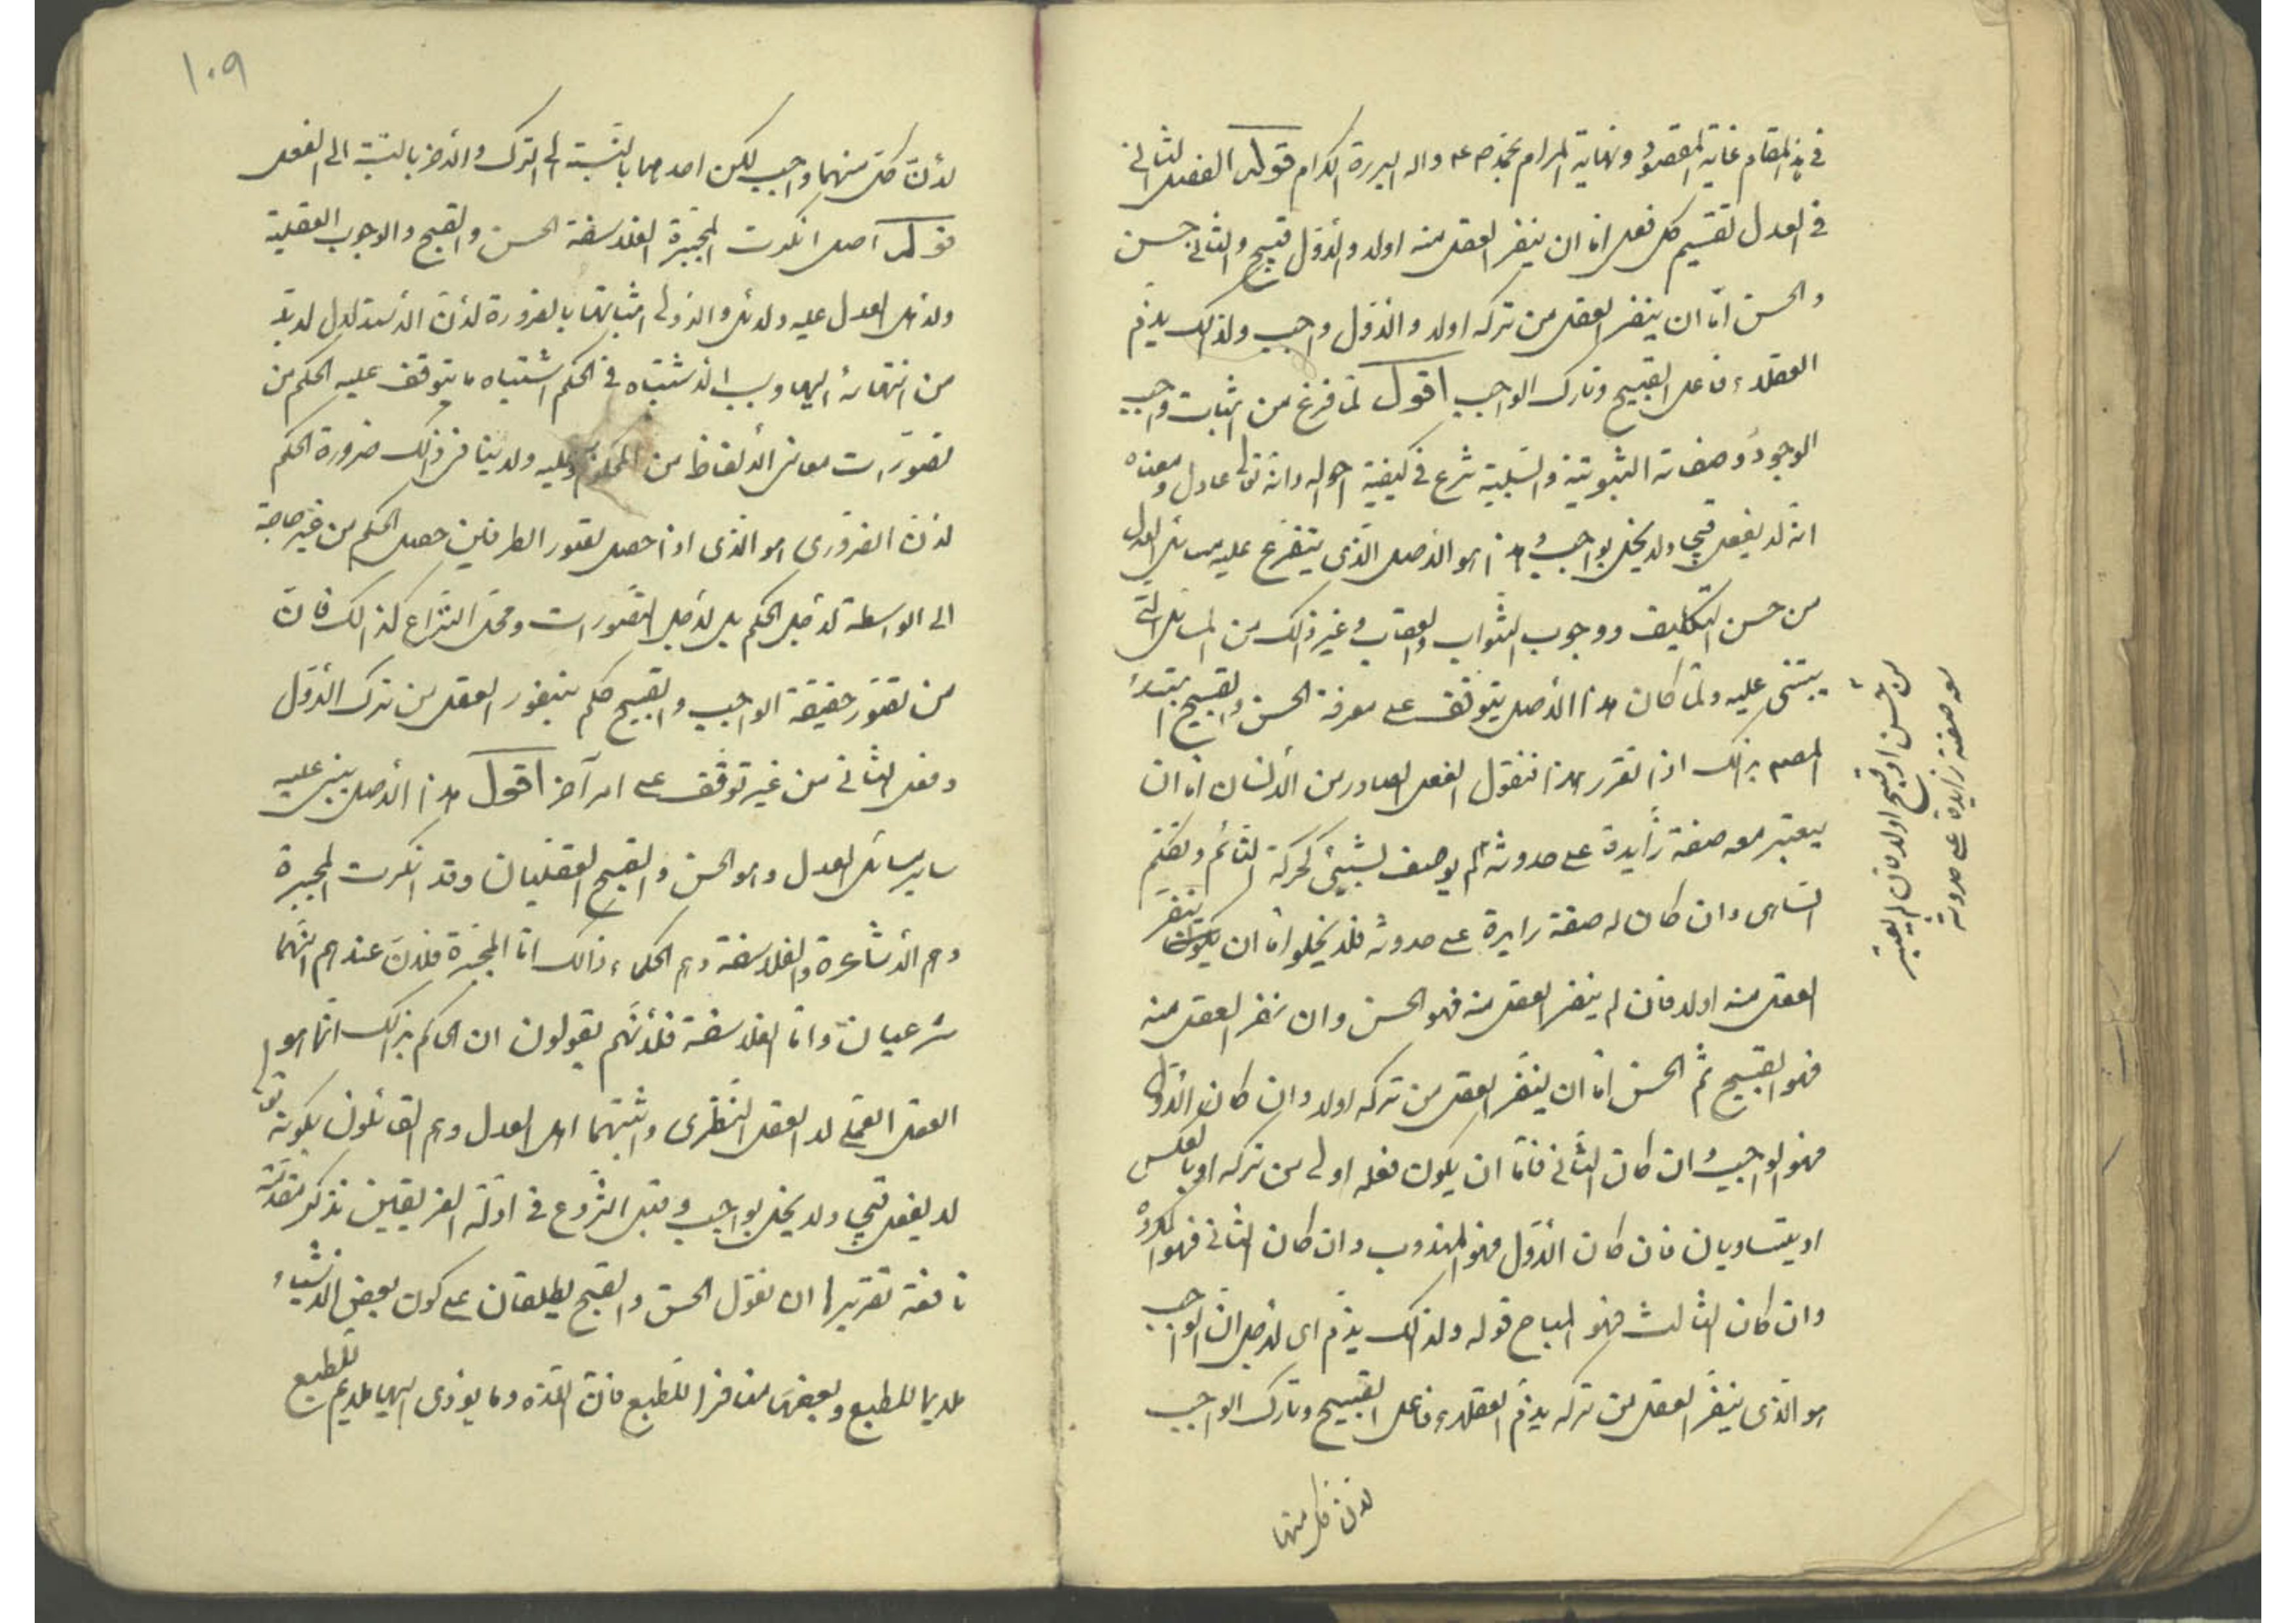 في هذا المقام غاية المقصود ونهاية المرام بمحمد ص ع واله البررة الكرام قوله الفصل الثاني
في العدل تقسيم كل فعل اما ان ينفر العقل منه اولا والأول قبيح والثاني حسن
والحسن اما ان ينفر العقل من تركه اولا والاول واجب ولذلك يذم
العقلاء فاعل القبيح وتارك الواجب اقول لما فرغ من اثبات واجب
الوجود وصفاته الثبوتية والسلبية شرع في كيفية احواله وانه تعالى عادل ومعناه
انه لا يفعل قبيحا ولا يخل بواجب وهذا هو الاصل الذى يتفرع عليه مسائل العدل
من حسن التكليف ووجوب الثواب والعقاب وغير ذلك من المسائل التي
يبتنى عليه ولما كان هذا الأصل يتوقف على معرفة الحسن والقبيح ابتدأ
المصم بذلك اذا تقرر هذا فنقول الفعل الصادر من الأنسان اما ان
يعتبر معه صفة زايدة على حدوثه لم يوصف بشيئ كحركة النائم وتكلم
الساهى وان كان له صفة زايدة على حدوثه فلا يخلوا اما ان يكون ينفر
العقل منه اولا فان لم ينفر العقل منه فهو الحسن وان نفر العقل منه
فهو القبيح ثم الحسن اما ان ينفر العقل من تركه اولا وان كان الأول
فهو الواجب وان كان الثاني فاما ان يكون فعله اولى من تركه او بالعكس
او يتساويان فان كان الأول فهو المندوب وان كان الثاني فهو المكروه
وان كان الثالث فهو المباح قوله ولذلك يذم اى لاجل ان الواجب
هو الذى ينفر العقل من تركه يذم العقلاء فاعل القبيح وتارك الواجب
لان كل منهما
من حسن او قبح اولا فان لم يعتبر
معه صفة زايدة على حدوثه
١٠٩
لأن كل منهما واجب لكن احدهما بالنسبة الى الترك والاخر بالنسبة الى الفعل
قوله اصل انكرت المجبرة الفلاسفة الحسن والقبح والوجوب العقلية
ولاهل العدل عليه دلائل والاولى اثباتها بالضرورة لأن الأستدلال لابد
من انتهائه اليها وسبب الأشتباه في الحكم اشتباه ما يتوقف عليه الحكم من
تصورات معانى الألفاظ من المحكوم وعليه ولا ينافى ذلك ضرورة الحكم
لان الضرورى هو الذى اذا حصل تصور الطرفين حصل الحكم من غير حاجة
الى الواسطة لأجل الحكم بل لأجل التصورات ومحل النزاع كذالك فان
من تصور حقيقة الواجب والقبيح حكم بنفور العقل من ترك الأول
وفعل الثانى من غير توقف على امر آخر اقول هذا الأصل يبنى عليه
ساير مسائل العدل وهو الحسن والقبح العقليان وقد انكرت المجبرة
وهم الأشاعرة والفلاسفة وهم الحكماء ذالك اما المجبرة فلان عندهم انهما
شرعيان واما الفلاسفة فلأنهم يقولون ان الحاكم بذلك انما هو
العقل العملي لا العقل النظرى واثبتهما اهل العدل وهم القائلون بكونه تعالى
لا يفعل قبيحا ولا يخل بواجب وقبل الشروع في ادلة الفريقين نذكر مقدمة
نافعة تقريرها ان نقول الحسن والقبح يطلقان على كون بعض الاشياء
ملايما للطبع وبعضها منافرا للطبع فان اللذة وما يؤدى اليها ملايم للطبع